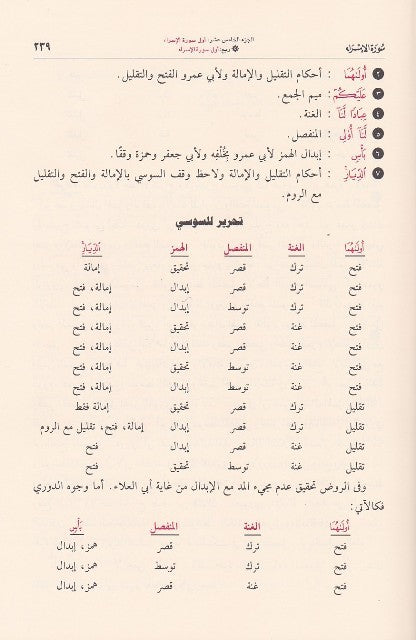 سُورَةُ الإِسْرَاء
الجزء الخامس عشر: أولى سورة الإسراء
ربع: أولى سورة الإسراء
٢٣٩
٢ أُولَىٰهُمَا : أحكام التقليل والإمالة ولأبي عمرو الفتح والتقليل.
٣ عَلَيْكُمْ : ميم الجمع.
٤ عِبَادًا لَّنَا : الغنة.
٥ لَّنَا أُو۟لِى : المنفصل.
٦ بَأْسٍ : إبدال الهمز لأبي عمرو بِخُلْفِه ولأبي جعفر وحمزة وقفًا.
٧ الدِّيَارِ : أحكام التقليل والإمالة ولاحظ وقف السوسي بالإمالة والفتح والتقليل
مع الروم.
تحرير للسوسي
أُولَىٰهُمَا الغنة المنفصل الهمز الدِّيَارِ
فتح ترك قصر تحقيق إمالة
فتح ترك قصر إبدال إمالة، فتح
فتح ترك توسط إبدال إمالة، فتح
فتح غنة قصر تحقيق إمالة، فتح
فتح غنة قصر إبدال إمالة، فتح
فتح غنة توسط تحقيق إمالة، فتح
فتح غنة توسط إبدال إمالة، فتح
تقليل ترك قصر تحقيق إمالة فقط
تقليل ترك قصر إبدال إمالة، فتح، تقليل مع الروم
تقليل غنة قصر إبدال فتح
تقليل غنة توسط تحقيق فتح
وفى الروض تحقيق عدم مجيء المد مع الإبدال من غاية أبي العلاء. أما وجوه الدوري
فكالآتي:
أُولَىٰهُمَا الغنة المنفصل بَأْسٍ
فتح ترك قصر همز، إبدال
فتح ترك توسط همز، إبدال
فتح غنة قصر همز، إبدال